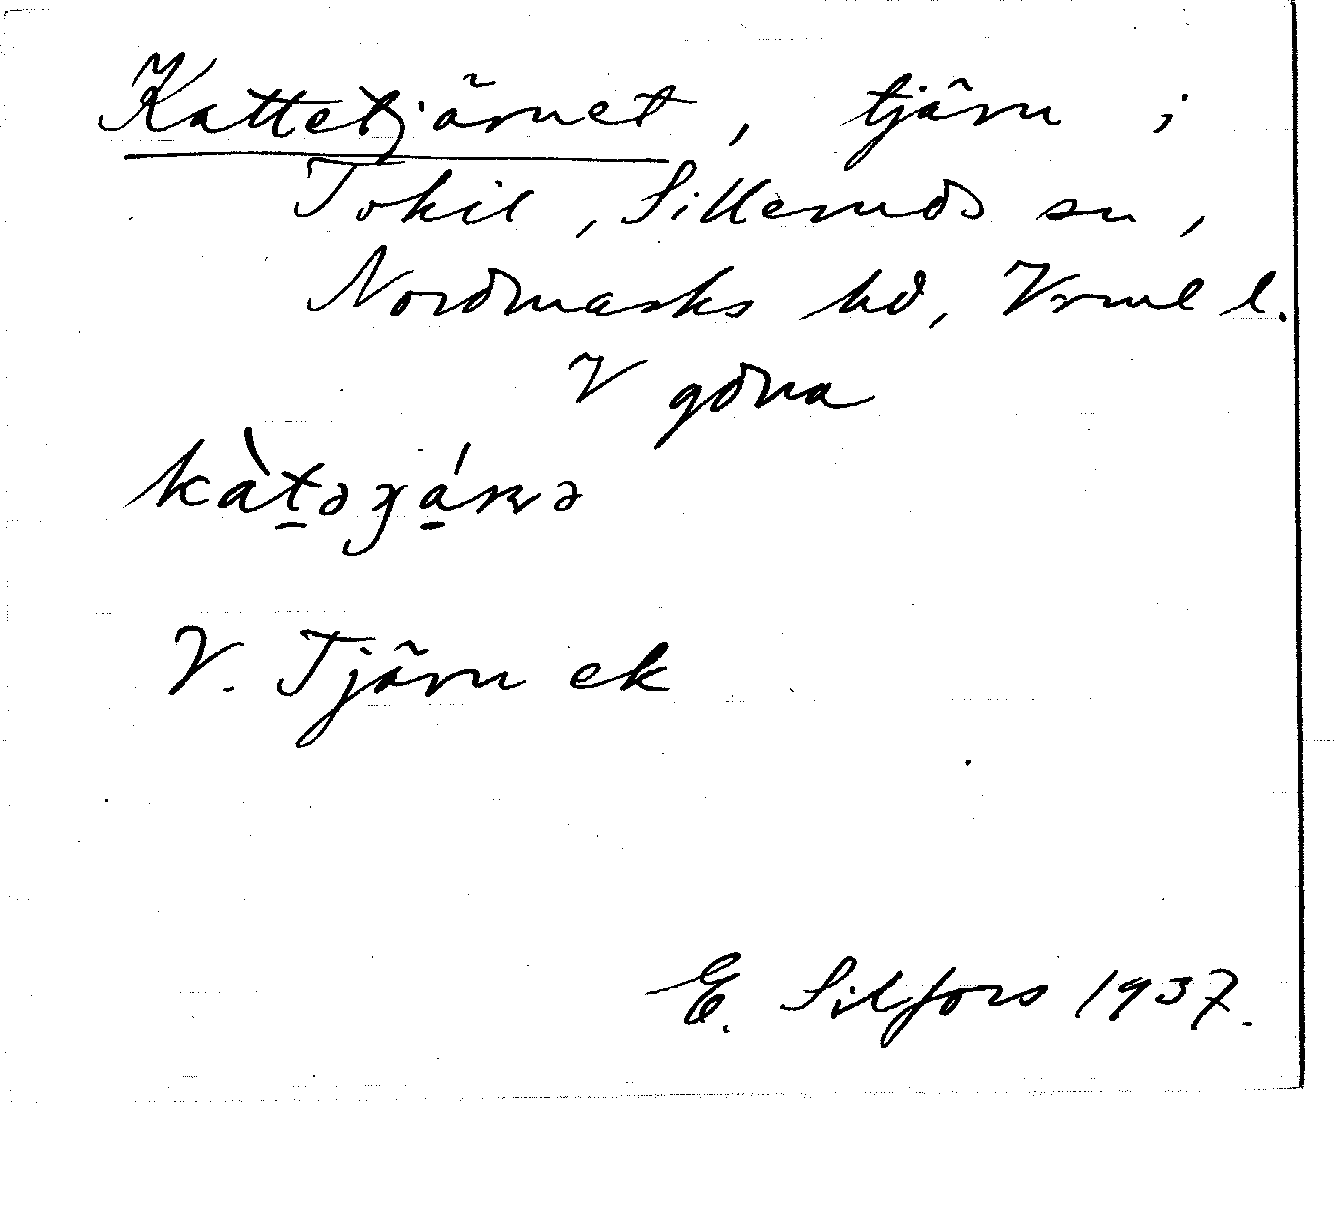 Kattetjärnet, tjärn i
Tokil, Silleruds sn,
Nordmarks hd, Vrml l.
V gdna
kàt̲əɟá̲ɴə
V. Tjärn ek
E. Silfors 1937.